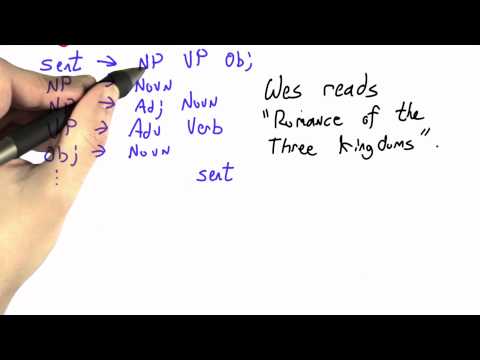 sent → NP VP Obj
NP → Noun
NP → Adj Noun
VP → Adv Verb
Obj → Noun
⋮
sent
Wes reads
"Romance of the
Three Kingdoms".